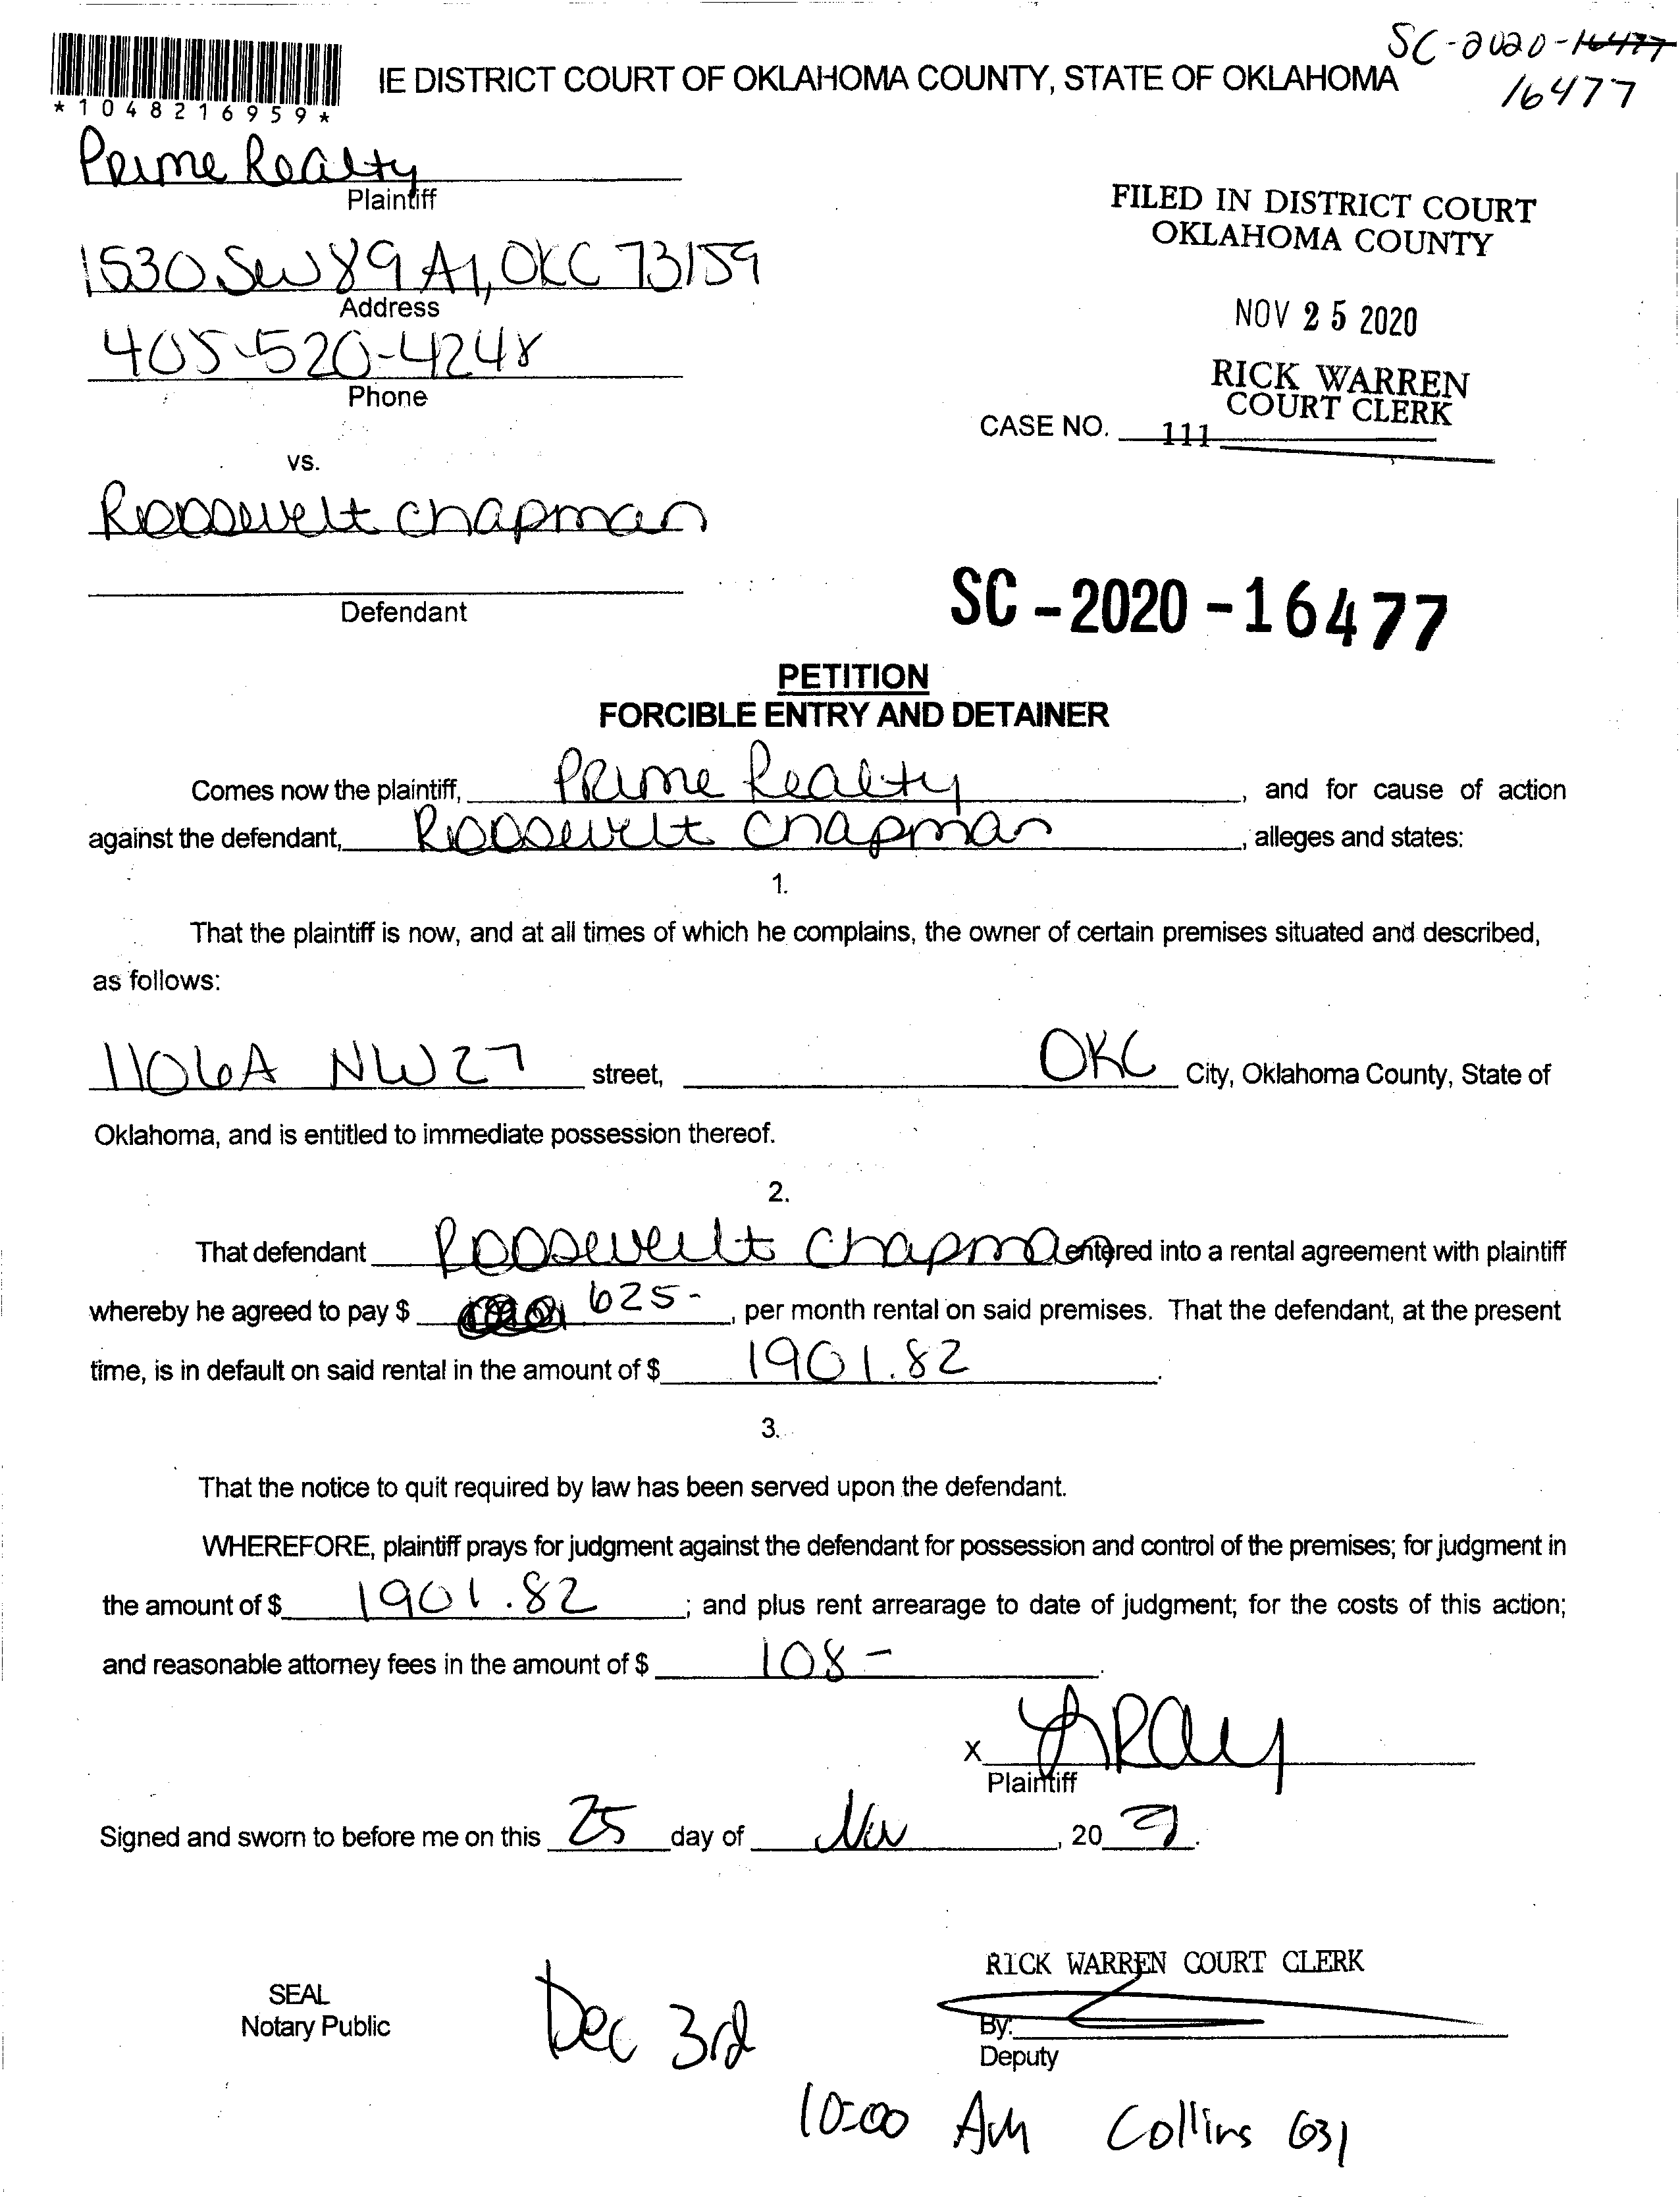 SC-2020-16477
16477
*1048216959*
IE DISTRICT COURT OF OKLAHOMA COUNTY, STATE OF OKLAHOMA
Prime Realty
Plaintiff
1530 SW 89 A1, OKC 73159
Address
405-520-4248
Phone
FILED IN DISTRICT COURT
OKLAHOMA COUNTY
NOV 25 2020
RICK WARREN
COURT CLERK
CASE NO. 111
vs.
Roosevelt Chapman
Defendant
SC-2020-16477
PETITION
FORCIBLE ENTRY AND DETAINER
Comes now the plaintiff, Prime Realty, and for cause of action
against the defendant, Roosevelt Chapman, alleges and states:
1.
That the plaintiff is now, and at all times of which he complains, the owner of certain premises situated and described,
as follows:
1106A NW 27 street, OKC City, Oklahoma County, State of
Oklahoma, and is entitled to immediate possession thereof.
2.
That defendant Roosevelt Chapman entered into a rental agreement with plaintiff
whereby he agreed to pay $ 625-, per month rental on said premises. That the defendant, at the present
time, is in default on said rental in the amount of $ 1901.82.
3.
That the notice to quit required by law has been served upon the defendant.
WHEREFORE, plaintiff prays for judgment against the defendant for possession and control of the premises; for judgment in
the amount of $ 1901.82; and plus rent arrearage to date of judgment; for the costs of this action;
and reasonable attorney fees in the amount of $ 108-.
x
Plaintiff
Signed and sworn to before me on this 25 day of Nov, 20
RICK WARREN COURT CLERK
SEAL
Notary Public
By:
Deputy
Dec 3rd
10:00 AM Collins 631